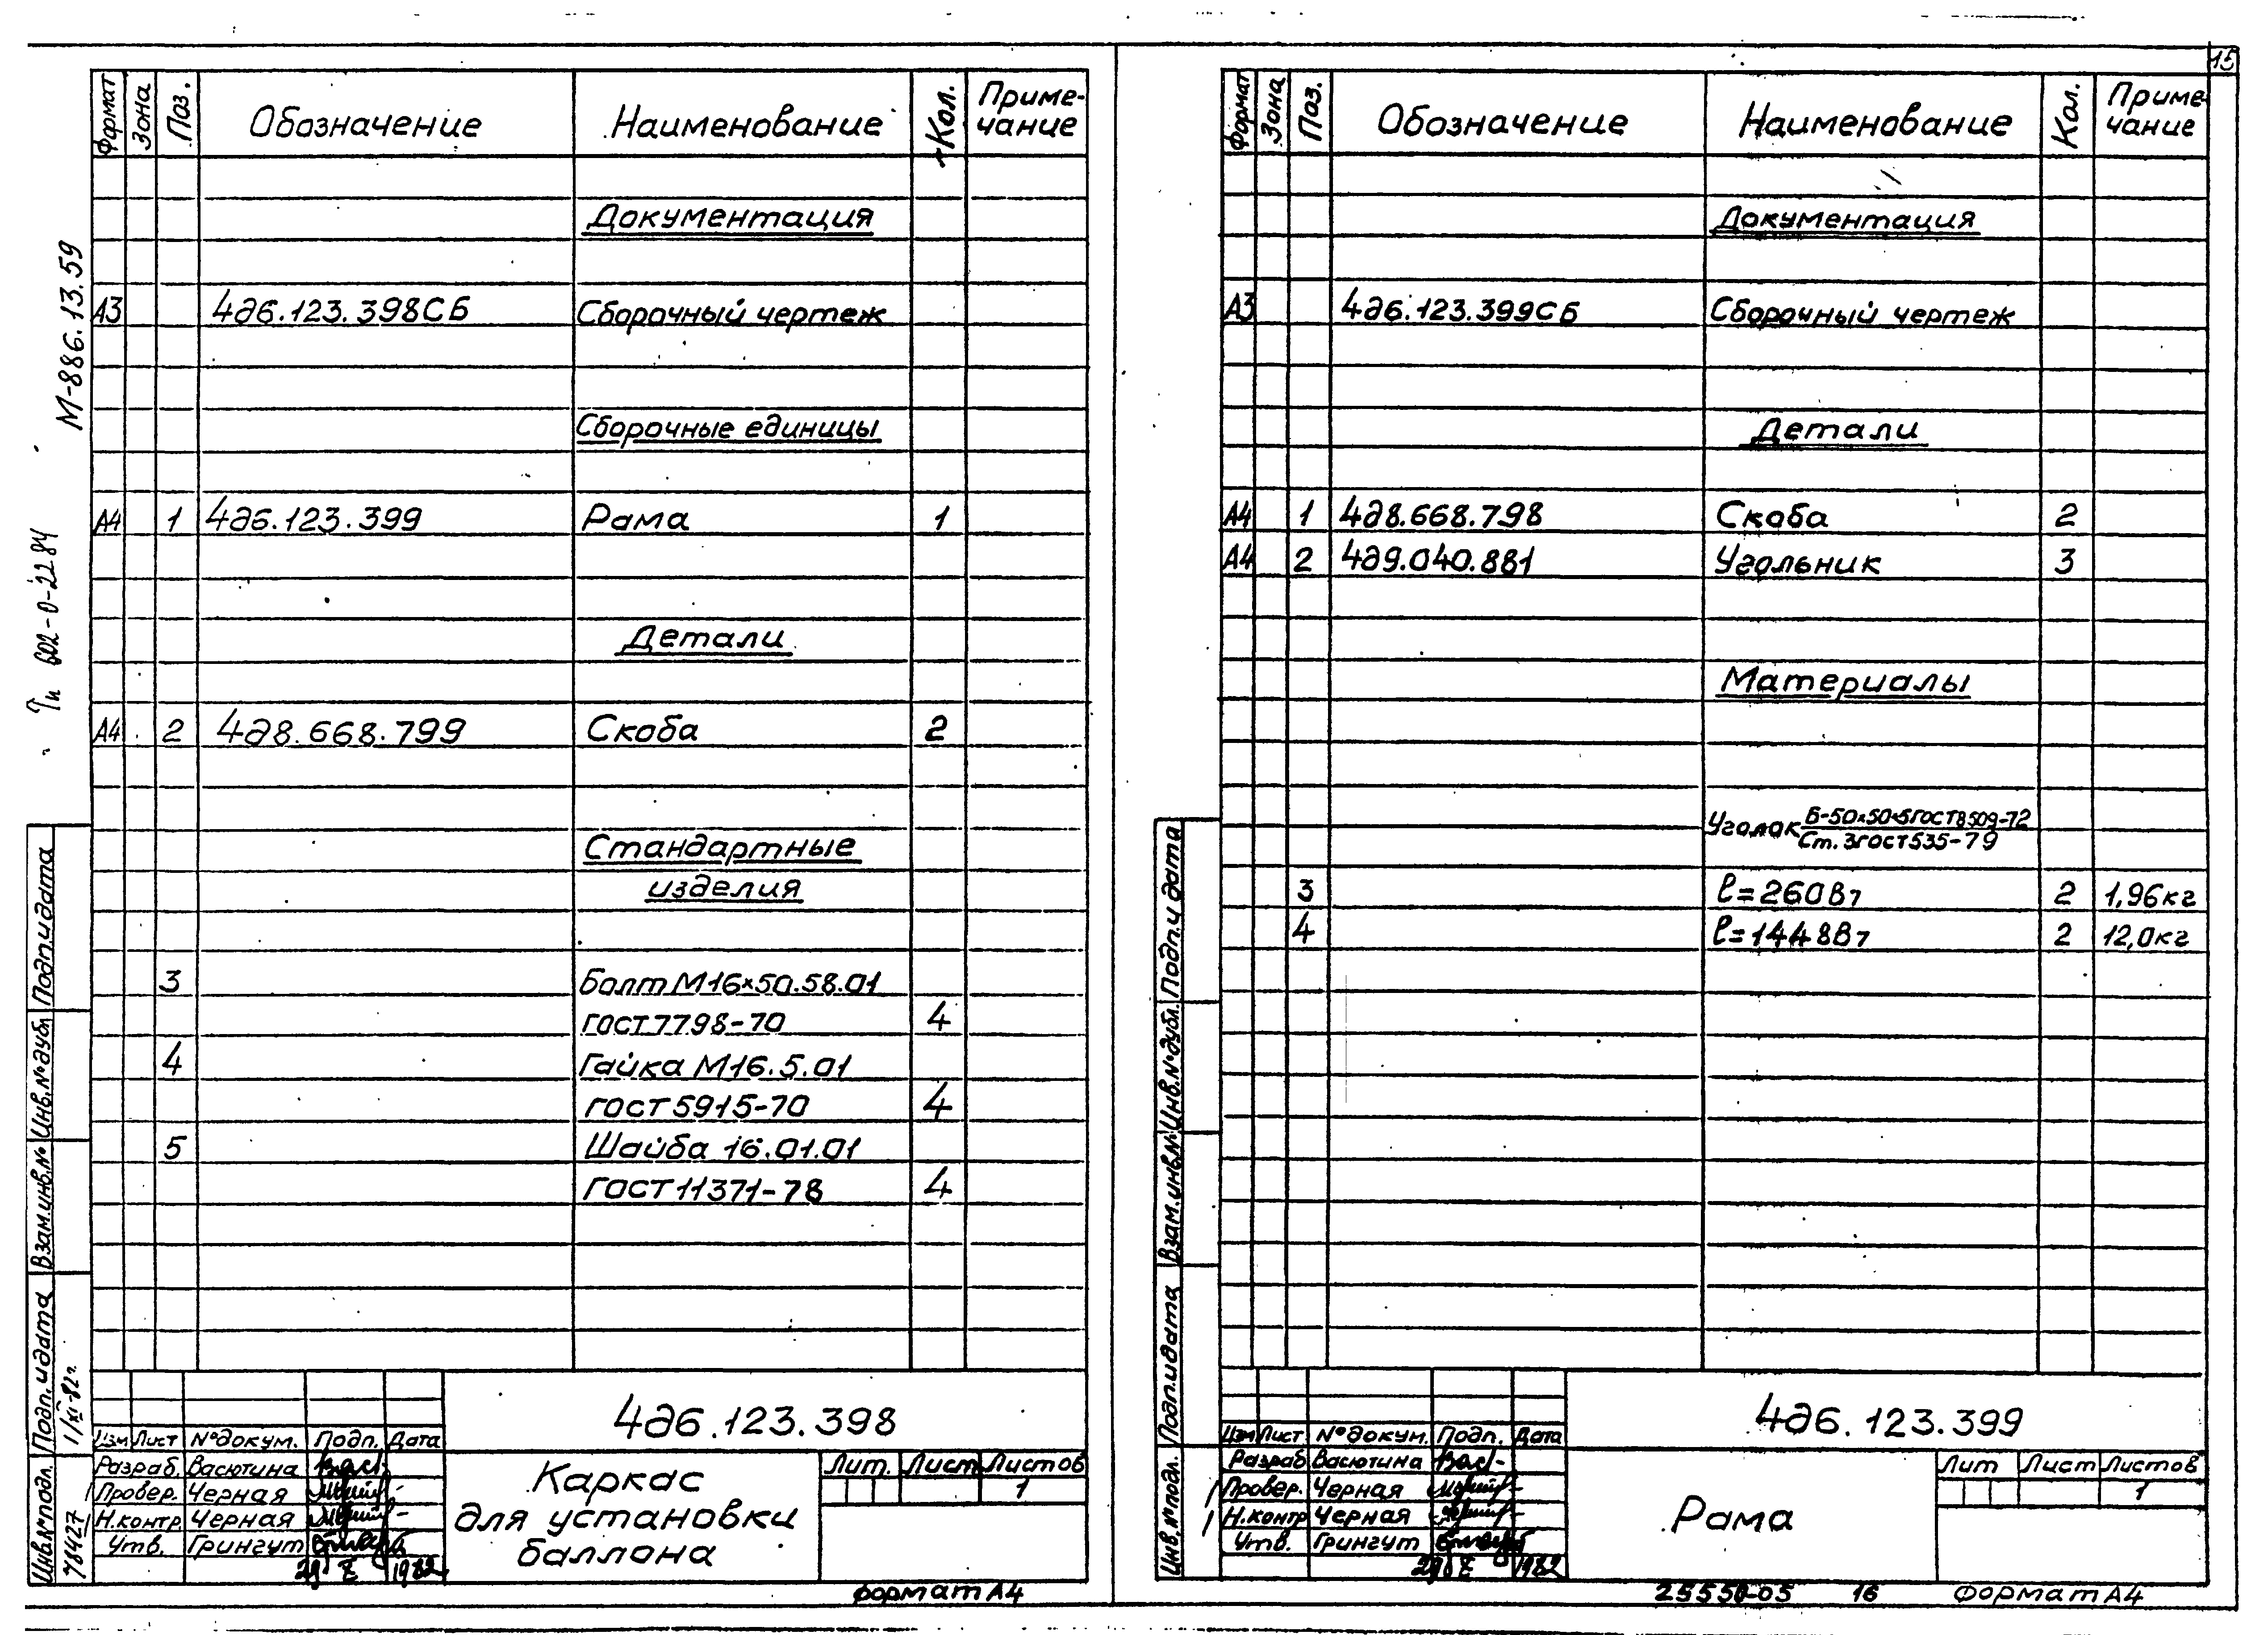 15
Формат Зона Поз. Обозначение Наименование Кол. Приме-
чание
Документация
А3 4д6.123.398СБ Сборочный чертеж
Сборочные единицы
А4 1 4д6.123.399 Рама 1
Детали
А4 2 4д8.668.799 Скоба 2
Стандартные
изделия
3 Болт М16×50.58.01
ГОСТ 7798-70 4
4 Гайка М16.5.01
ГОСТ 5915-70 4
5 Шайба 16.01.01
ГОСТ 11371-78 4
М-886.13.59
602-0-2284
Подп. и дата
Инв.№ дубл
Взам.инв.№
Подп. и дата
Инв.№ подл.
78427
4д6.123.398
Изм Лист №докум. Подп. Дата
Разраб. Васютина
Провер. Черная
Н.контр Черная
Утв. Грингут
1982
Каркас
для установки
баллона
Лит. Лист Листов
1
формат А4
Формат Зона Поз. Обозначение Наименование Кол. Приме-
чание
Документация
А3 4д6.123.399СБ Сборочный чертеж
Детали
А4 1 4д8.668.798 Скоба 2
А4 2 4д9.040.881 Угольник 3
Материалы
Уголок Б-50×50×5 ГОСТ 8509-72
Ст. 3 ГОСТ 535-79
3 ℓ=260В7 2 1,96кг
4 ℓ=1448В7 2 12,0кг
Подп. и дата
Инв.№ дубл.
Взам.инв.№
Подп. и дата
Инв.№ подл.
4д6.123.399
Изм Лист №докум. Подп. Дата
Разраб Васютина
Провер. Черная
Н.контр Черная
Утв. Грингут
1982
Рама
Лит Лист Листов
1
25550-05 16 формат А4